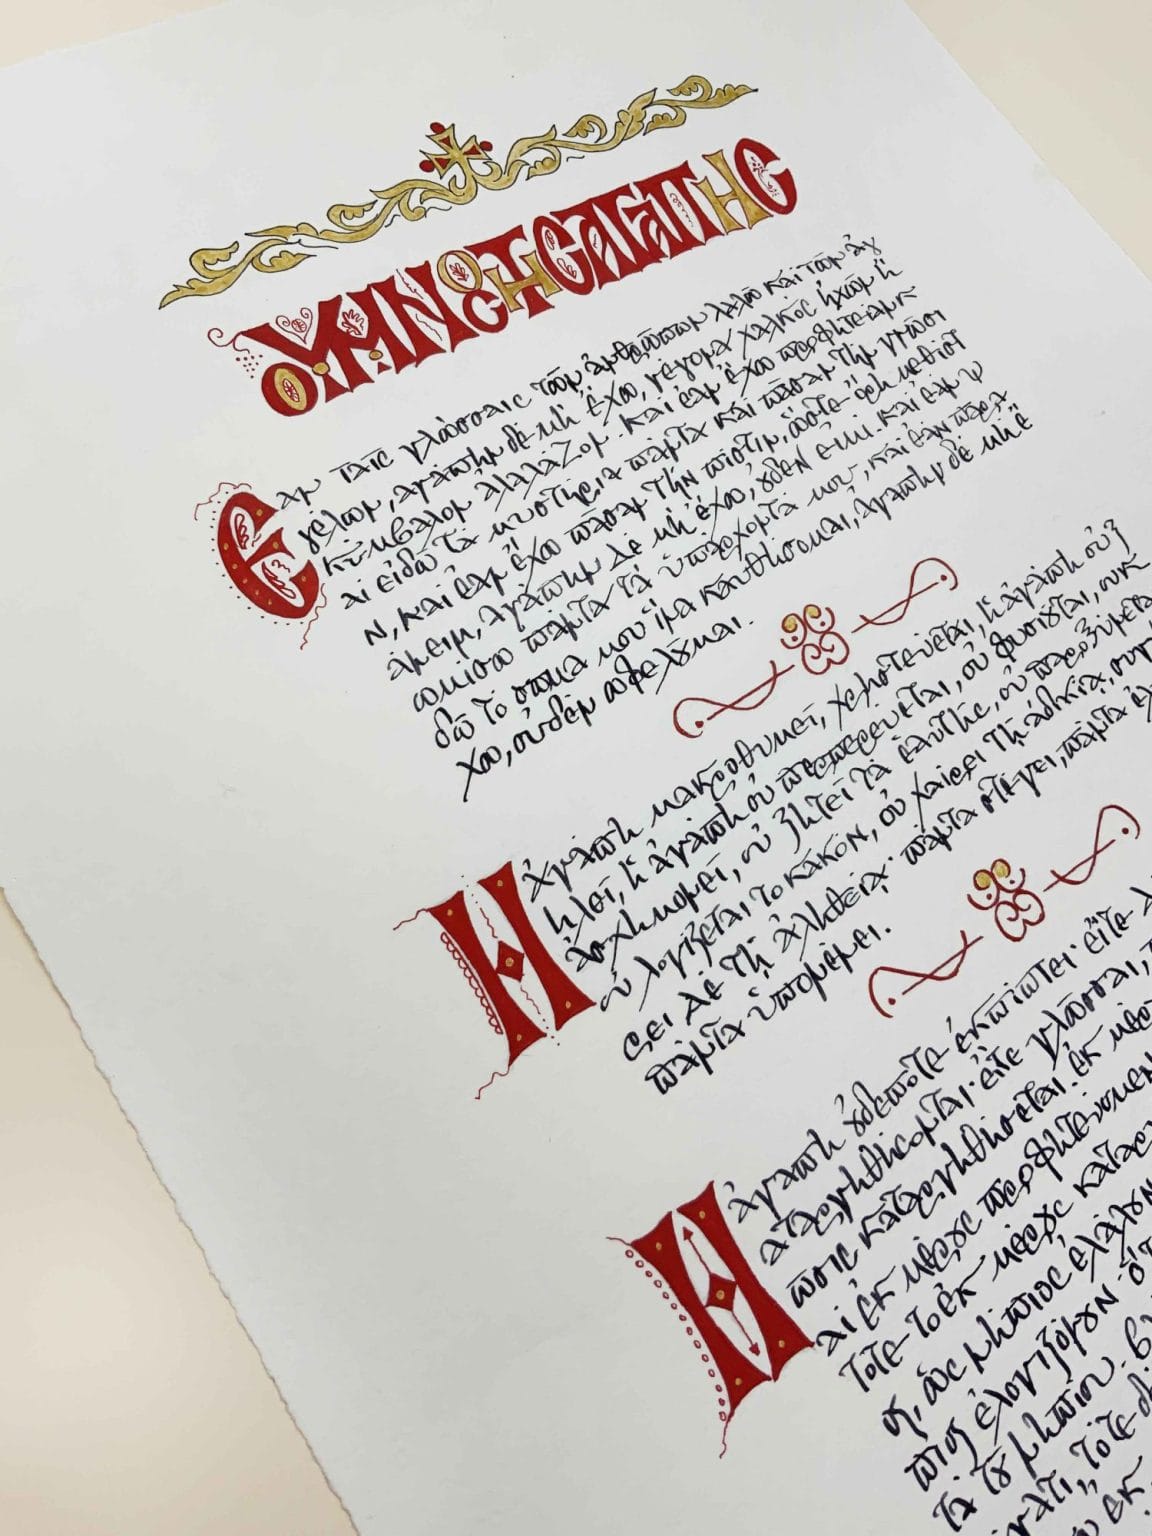 ὝΜΝΟC ΤΗC ΑΓΑΠΗC
Ἐὰν ταῖς γλώσσαις τῶν ἀνθρώπων λαλῶ καὶ τῶν ἀγ
γέλων, ἀγάπην δὲ μὴ ἔχω, γέγονα χαλκὸς ἠχῶν ἢ
κύμβαλον ἀλαλάζον. καὶ ἐὰν ἔχω προφητείαν κ
αὶ εἰδῶ τὰ μυστήρια πάντα καὶ πᾶσαν τὴν γνῶσι
ν, καὶ ἐὰν ἔχω πᾶσαν τὴν πίστιν, ὥστε ὄρη μεθιστ
άνειν, ἀγάπην δὲ μὴ ἔχω, οὐδέν εἰμι. καὶ ἐὰν ψ
ωμίσω πάντα τὰ ὑπάρχοντά μου, καὶ ἐὰν παρα
δῶ τὸ σῶμα μου ἵνα καυθήσομαι, ἀγάπην δὲ μὴ ἔ
χω, οὐδὲν ὠφελοῦμαι.
Ἡ ἀγάπη μακροθυμεῖ, χρηστεύεται, ἡ ἀγάπη οὐ ζ
ηλοῖ, ἡ ἀγάπη οὐ περπερεύεται, οὐ φυσιοῦται, οὐκ
ἀσχημονεῖ, οὐ ζητεῖ τὰ ἑαυτῆς, οὐ παροξύνετα
οὐ λογίζεται τὸ κακόν, οὐ χαίρει τῇ ἀδικίᾳ, συγ
ρει δὲ τῇ ἀληθείᾳ· πάντα στέγει, πάντα
πάντα ὑπομένει.
Ἡ ἀγάπη οὐδέποτε ἐκπίπτει· εἴτε
αταργηθήσονται· εἴτε γλῶσσαι,
ῶσις καταργηθήσεται. ἐκ μέρ
αὶ ἐκ μέρους προφητεύομεν
τότε τὸ ἐκ μέρους καταρ
ην, ὡς νήπιος ἐλάλουν
πιος ἐλογιζόμουν· ὅτ
τὰ τοῦ νηπίου.
τότε
ἐκ